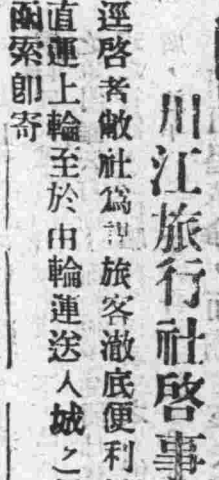 川江旅行社啓事
逕啓者敝社爲 旅客澈底便利
直運上輪至於由輪運送人城之
函索卽寄